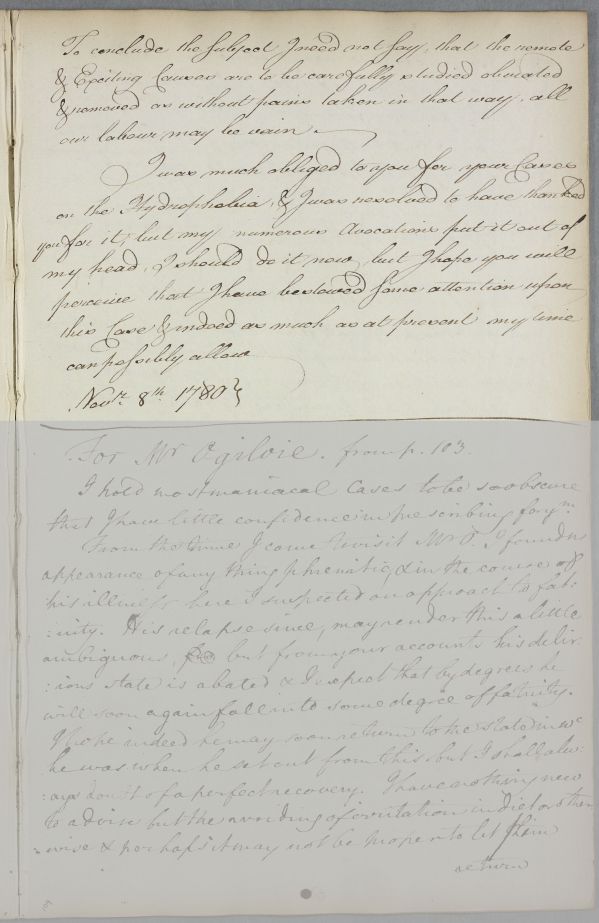 To conclude the subject I need not say, that the remote
& Exciting Causes are to be carefully studied obviated
& removed as without pains taken in that way, all
our labour may be vain
I was much obliged to you for your Cases
on the Hydrophobia, & I was resolved to have thanked
you for it, but my numerous Avocations put it out of
my head, I should do it now, but I hope you will
perceive that I have bestowed some attention upon
this Case & indeed as much as at present my time
can possibly allow
Novr. 8th. 1780
For Mr Ogilvie. from p. 103.
I hold most maniacal Cases to be so obscure
that I have little confidence in prescribing for ym
From the time I came to visit Mr O. I found no
appearance of any thing phrenitic, & in the course of
his illness here I suspected an approach to fat:
:uity. His relapse since, may render this a little
ambiguous, but from your accounts his delir:
:ious state is abated & I expect that by degrees he
will soon again fall into some degree of fatuity.
I hope indeed he may soon return to the state in wc
he was when he set out from this but I shall alw:
:ays doubt of a perfect recovery. I have nothing new
to advise but the avoiding of irritation in diet or other
:wise & perhaps it may not be proper to let him
return